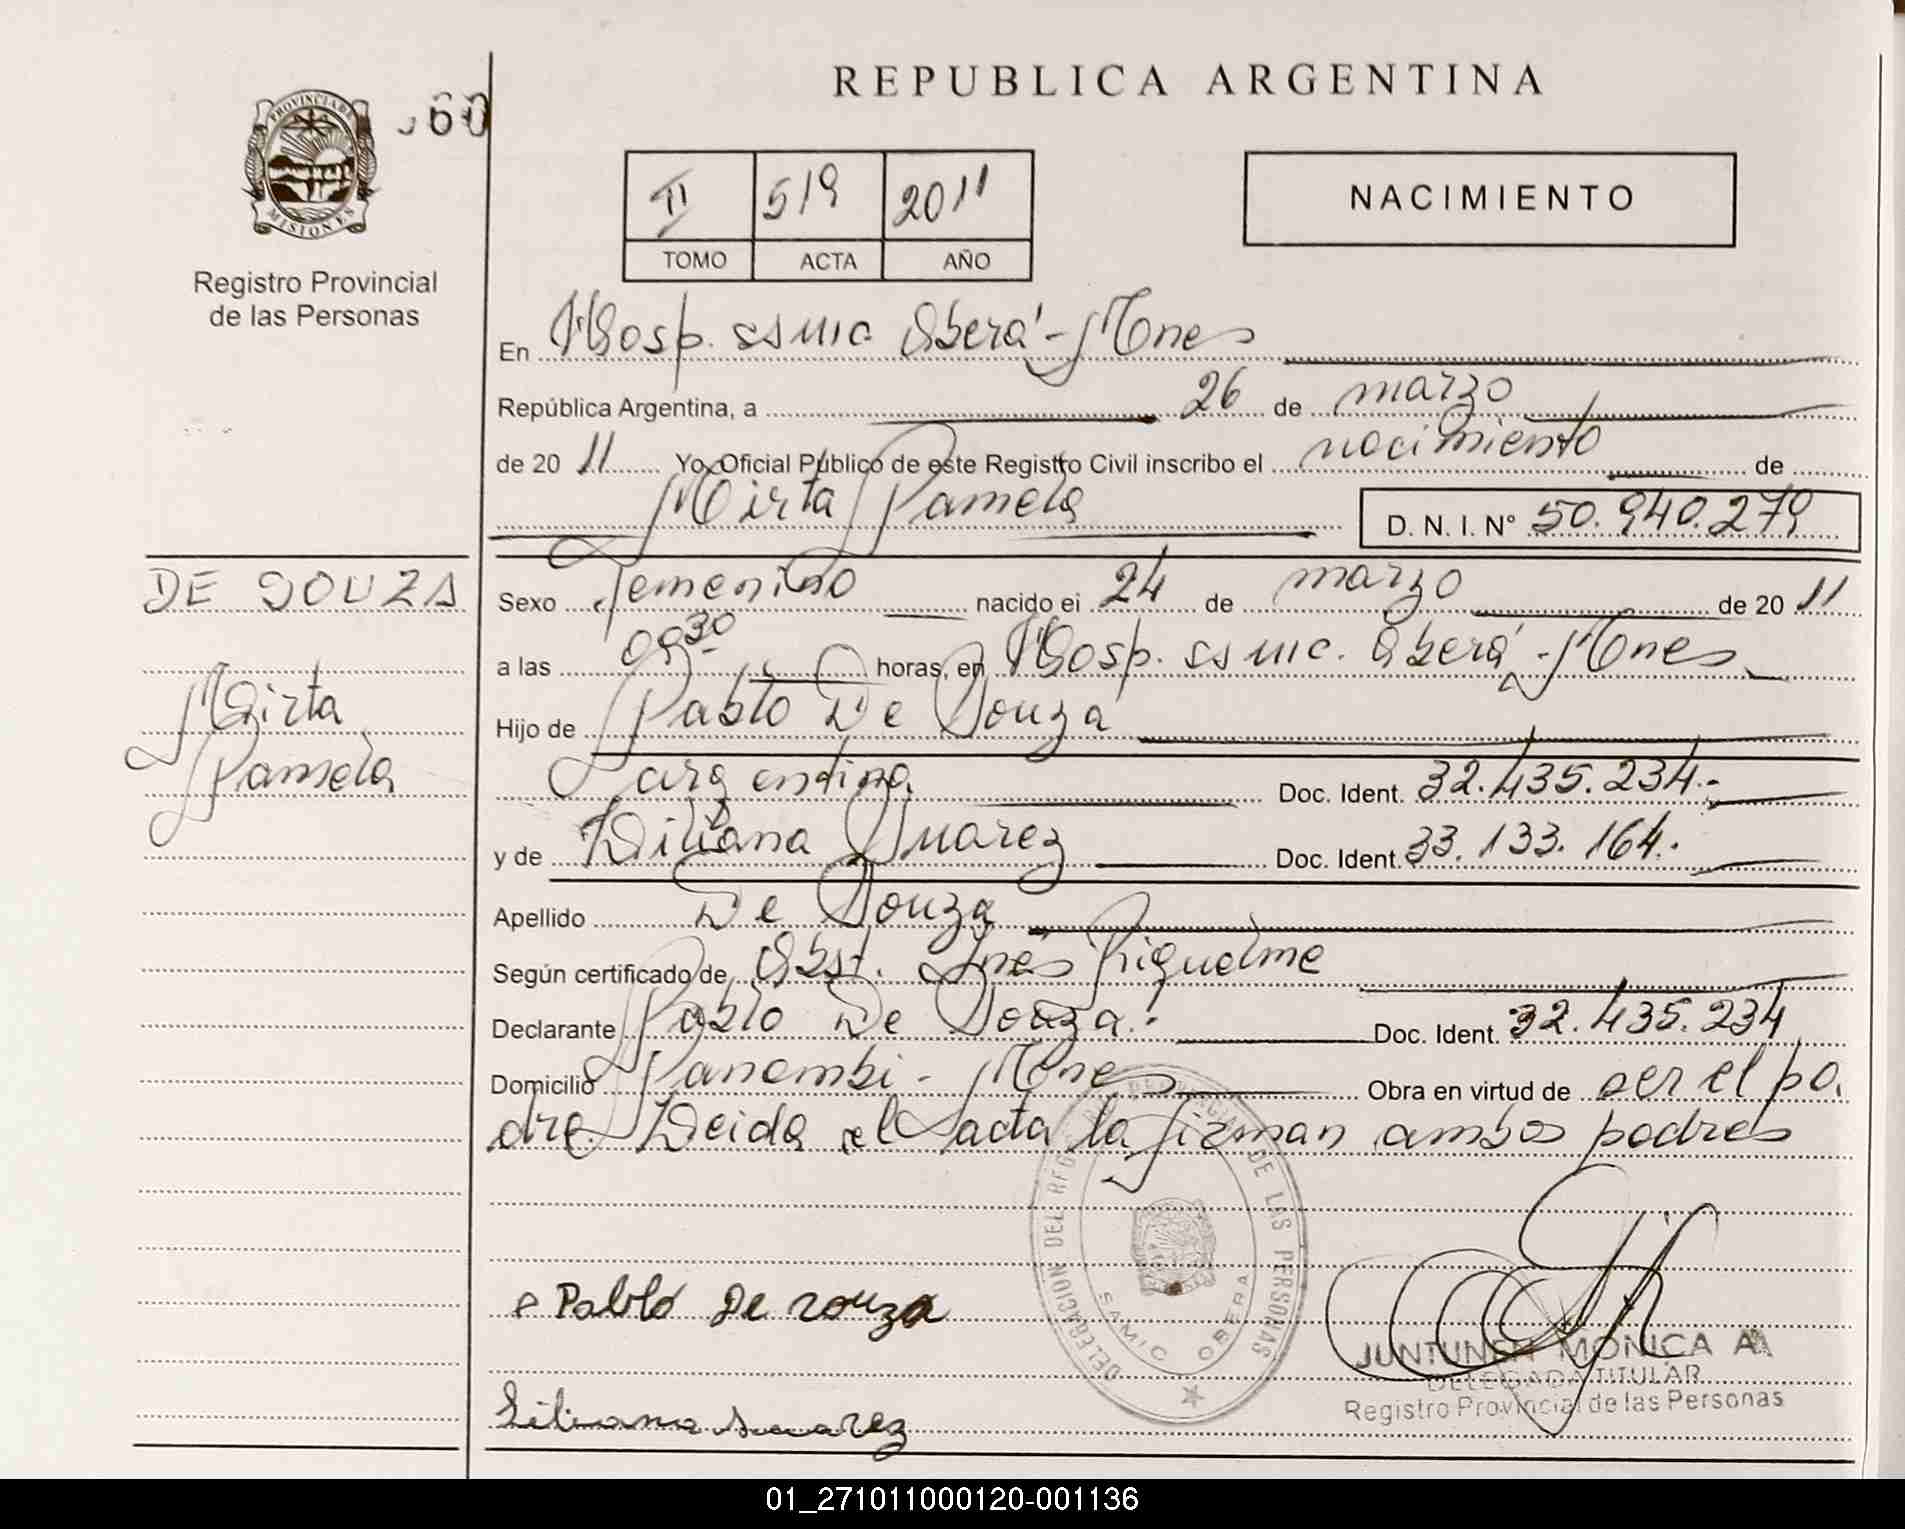 REPUBLICA ARGENTINA
PROVINCIA DE
MISIONES
60
Registro Provincial
de las Personas
II 519 2011
TOMO ACTA AÑO
NACIMIENTO
En Hosp. SAMIC Oberá - Mnes
República Argentina, a 26 de marzo
de 20 11 Yo, Oficial Público de este Registro Civil inscribo el nacimiento de
Mirta Pamela D. N. I. N° 50.940.279
DE SOUZA
Mirta
Pamela
Sexo femenino nacido el 24 de marzo de 20 11
a las 09 30 horas, en Hosp. SAMIC. Oberá - Mnes
Hijo de Pablo De Souza
argentina Doc. Ident. 32.435.234.-
y de Liliana Suarez Doc. Ident. 33.133.164.-
Apellido De Souza
Según certificado de Obst. Inés Riquelme
Declarante Pablo De Souza.- Doc. Ident. 32.435.234
Domicilio Panambi - Mnes Obra en virtud de ser el pa.
dre. Leida el acta la firman ambos padres
Pablo De Souza
Liliana Suarez
DELEGACION DEL REG. PROVINCIAL DE LAS PERSONAS
SAMIC OBERA
JUNTUNEN MONICA A
DELEGADA TITULAR
Registro Provincial de las Personas
01_271011000120-001136